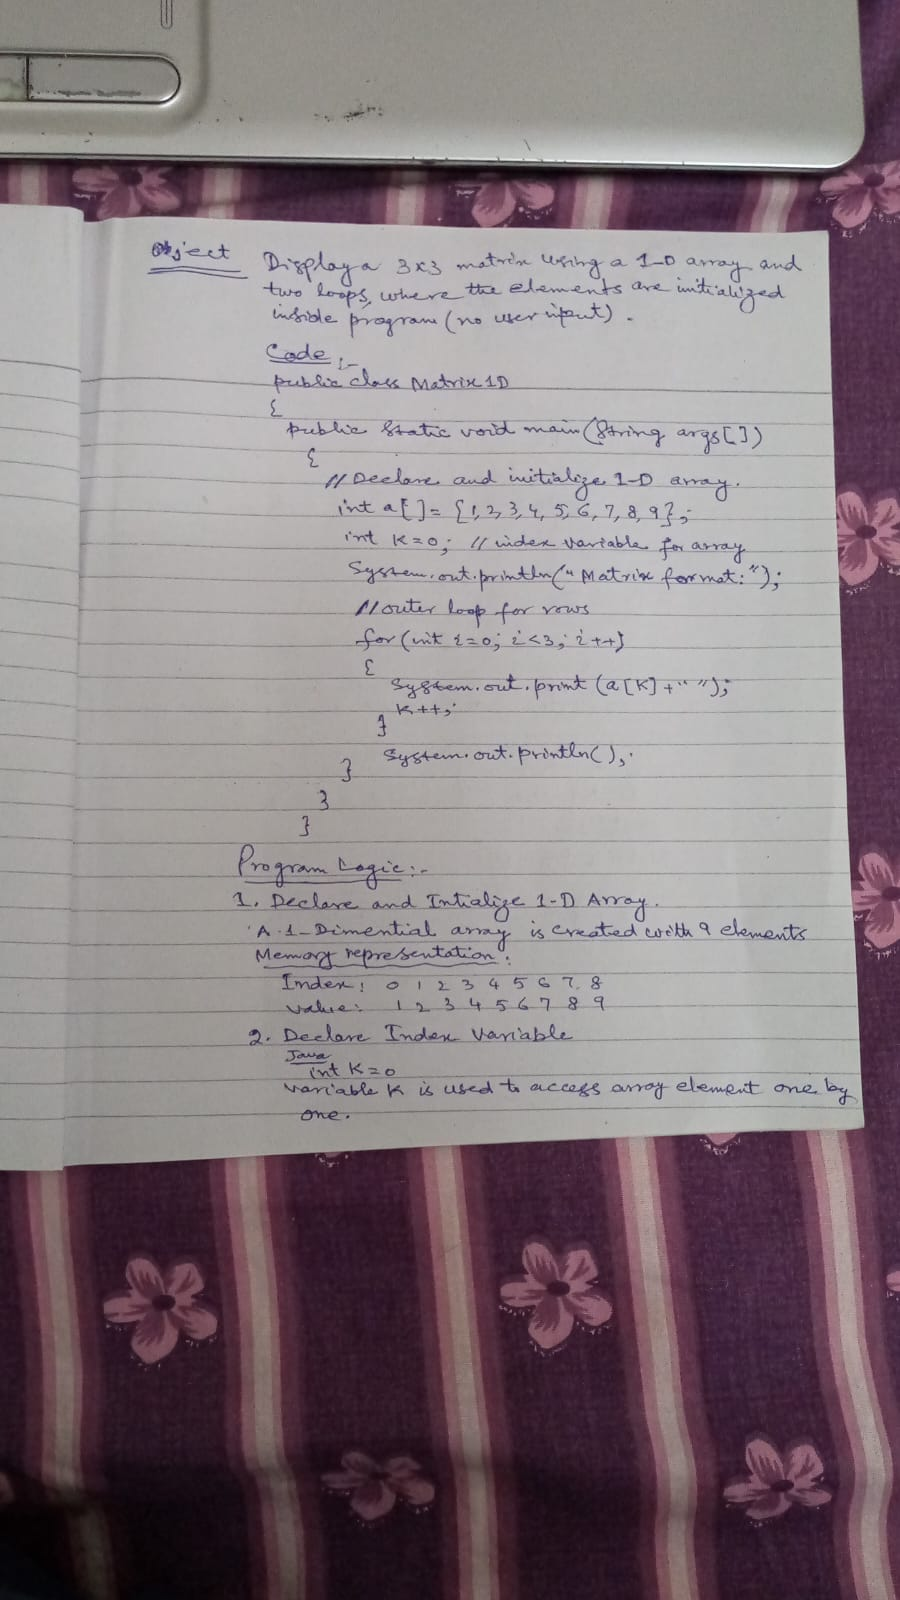 Object Display a 3x3 matrix using a 1-D array and
two loops, where the elements are initialized
inside program (no user input).
Code :-
public class Matrix 1D
{
public static void main(String args[])
{
// Declare and initialize 1-D array.
int a[]= {1,2,3,4,5,6,7,8,9};
int K=0; // index variable for array
System.out.println("Matrix format:");
//outer loop for rows
for(int i=0; i<3; i++)
{
System.out.print(a[K]+" ");
K++;
}
System.out.println();
}
}
}
Program Logic:-
1. Declare and Intialize 1-D Array.
A 1-Dimential array is created with 9 elements
Memory representation:
Index: 0 1 2 3 4 5 6 7. 8
value: 1 2 3 4 5 6 7 8 9
2. Declare Index Variable
Java
int K=0
variable K is used to access array element one by
one.